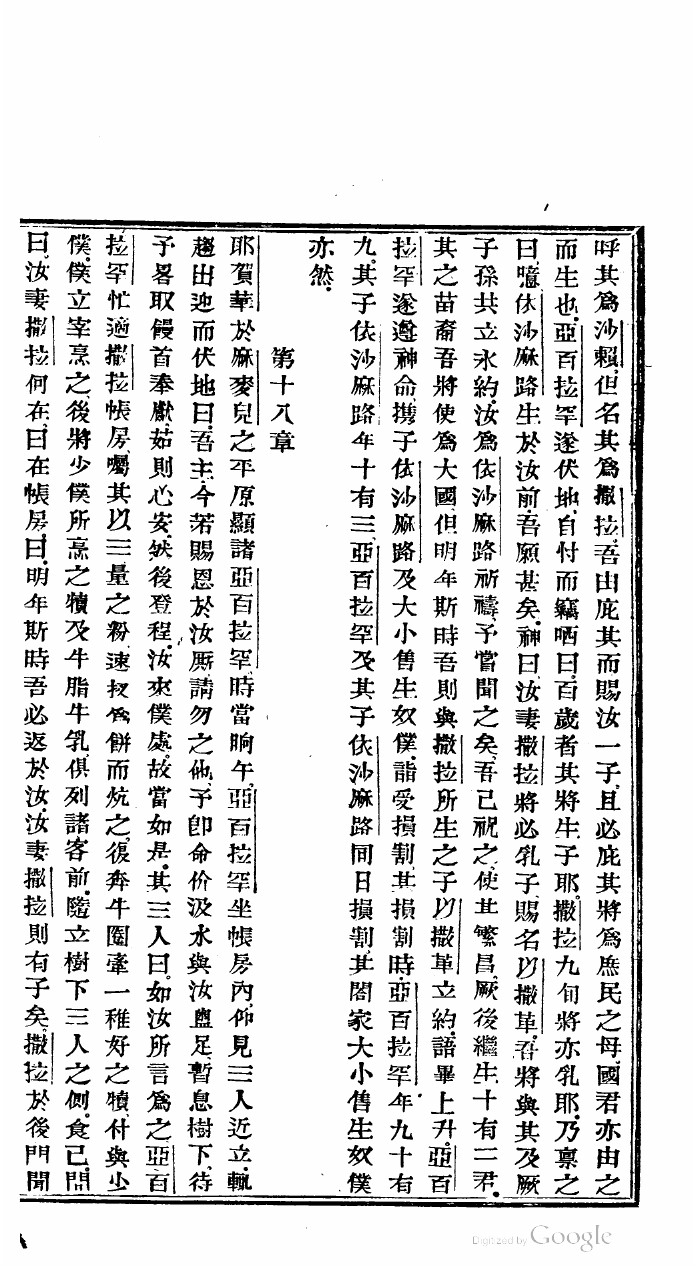 呼其為沙賴但名其為撒拉吾由庇其而賜汝一子且必庇其將為庶民之母國君亦由之
而生也亞百拉罕遂伏地自忖而竊哂曰百歲者其將生子耶撒拉九旬將亦乳耶乃禀之
曰噫依沙麻路生於汝前吾願甚矣神曰汝妻撒拉將必乳子賜名以撒革吾將與其及厥
子孫共立永約汝為依沙麻路祈禱予嘗聞之矣吾已祝之使其繁昌厥後繼生十有二君
其之苗裔吾將使為大國但明年斯時吾則與撒拉所生之子以撒革立約語畢上升亞百
拉罕遂遵神命携子依沙麻路及大小售生奴僕詣受損割其損割時亞百拉罕年九十有
九其子依沙麻路年十有三亞百拉罕及其子依沙麻路同日損割其閤家大小售生奴僕
亦然
第十八章
耶賀華於麻麥兒之平原顯諸亞百拉罕時當晌午亞百拉罕坐帳房內仰見三人近立輒
趨出迎而伏地曰吾主今若賜恩於汝厮請勿之他予卽命价汲水與汝盥足暫息樹下待
予畧取饅首奉獻茹則心安然後登程汝來僕處故當如是其三人曰如汝所言為之亞百
拉罕忙適撒拉帳房囑其以三量之粉速扠為餅而炕之復奔牛圈牽一稚好之犢付與少
僕僕立宰烹之後將少僕所烹之犢及牛脂牛乳俱列諸客前隨立樹下三人之側食已問
曰汝妻撒拉何在曰在帳房曰明年斯時吾必返於汝汝妻撒拉則有子矣撒拉於後門聞
Digitized by Google